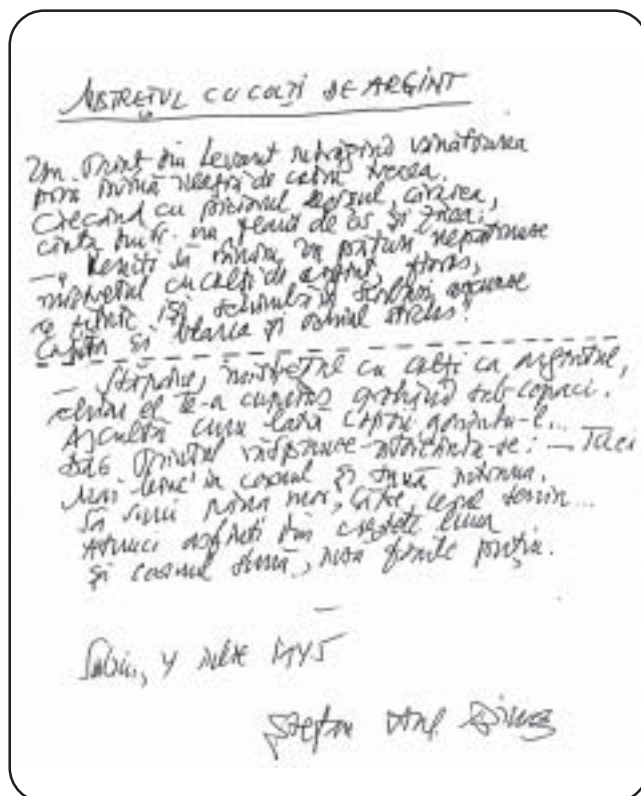 MISTREȚUL CU COLȚI DE ARGINT
Un prinț din Levant îndrăgind vânătoarea
prin inimă neagră de codru trecea.
cu cărarea,
cânta dintr-un de os și zicea:
— Veniți să vânăm în păduri nepătrunse
mistrețul cu colți de argint, fioros,
ce zilnic își schimbă în scorburi ascunse
copita și blana și ochiul sticlos!
— Stăpâne, mistrețul cu colți ca argintul,
chiar el te-a cuprins grohăind sub copaci.
Ascultă cum latră copoii gonindu-l...
Dar prințul răspunse-ntorcându-se: — Taci
Mai bine ia cornul și sună întruna.
Să suni până mor, către cerul senin...
Atunci asfinți din creștete luna
și cornul sună, însă foarte puțin.
—
Sibiu, 4 iulie 1945
Ștefan Aug. Doinaș